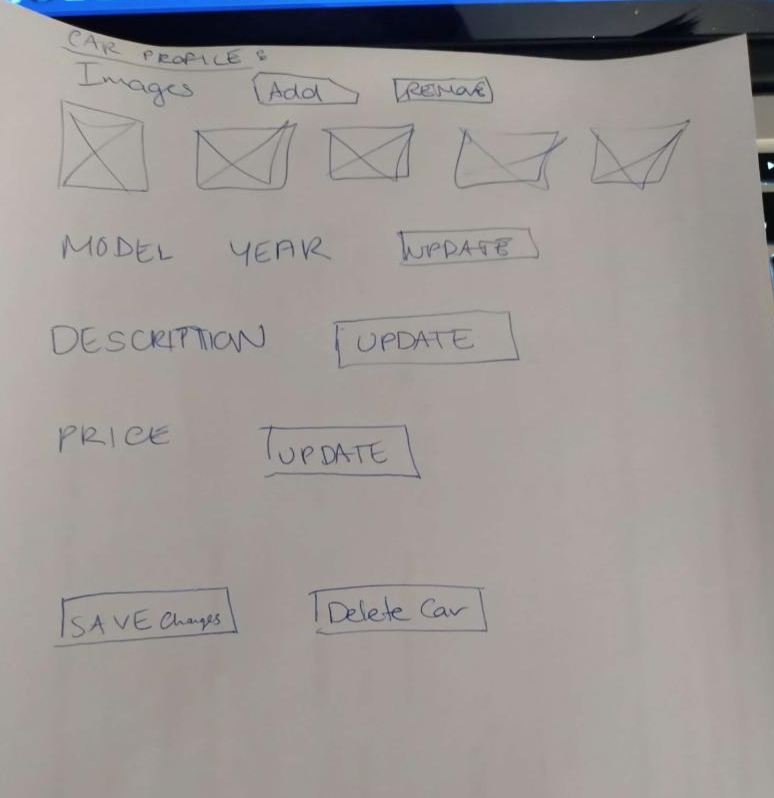 CAR PROFILE:
Images Add REMOVE
MODEL YEAR UPDATE
DESCRIPTION UPDATE
PRICE UPDATE
SAVE Changes Delete Car